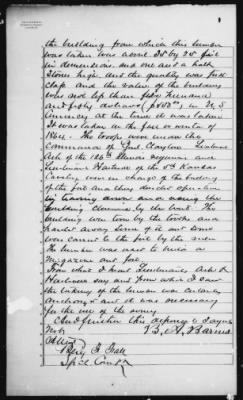 the building from which this lumber
was taken was about 35 by 25 feet
in dimensions and one and a half
stories high and the quality was first
class and the value of the building
was not less than fifty hundred
and fifty dollars in U.S.
Currency at the time it was taken
It was taken in the fall or winter of
1864. The troops were under the
Command of Genl. Clayton Lieutenant
Ash of the 126th Illinois regiment and
Lieutenant of the 5th Kansas
Cavalry were in charge of the building
of the fort and they
by tearing down and using the
building
The building was torn by the troops and
hauled away some of it and some
was carried to the fort by the men
The lumber was used to build a
Magazine and fort
From what I heard Lieutenants Ash &
say and from what I saw
the taking of the lumber was
and it was necessary
for the use of the army
And further this deponent saith
not
Attest
Spcl Comr